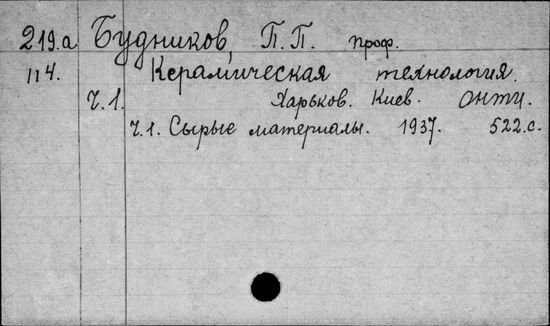 219.а Будников, П.П. проф.
114. Керамическая технология.
Ч.1. Харьков. Киев. ОНТИ.
Ч.1. Сырые материалы. 1937. 522.с.